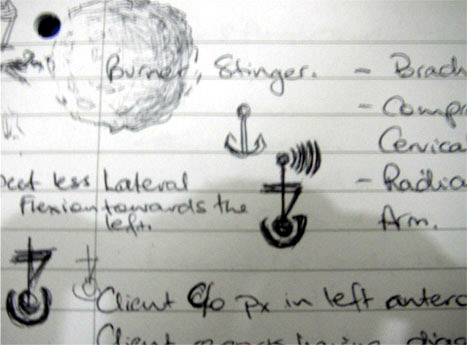 Burner, Stinger. - Brach
- Compr
Cervica
- Radia
Arm.
less Lateral
Flexion towards the
left.
Client c/o px in left antero
Client